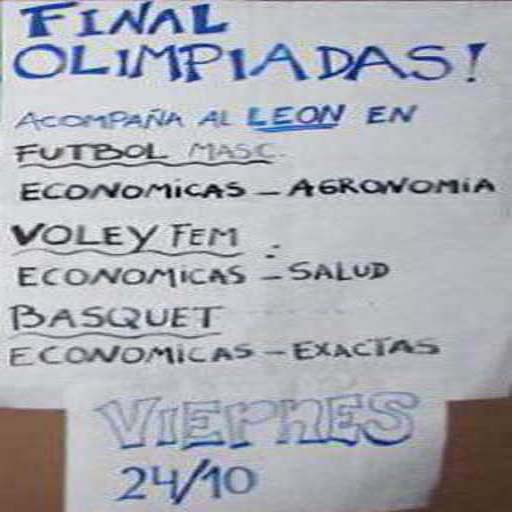 FINAL
OLIMPIADAS!
ACOMPAÑA AL LEON EN
FUTBOL MASC.
ECONOMICAS - AGRONOMIA
VOLEY FEM :
ECONOMICAS - SALUD
BASQUET
ECONOMICAS - EXACTAS
VIERNES
24/10